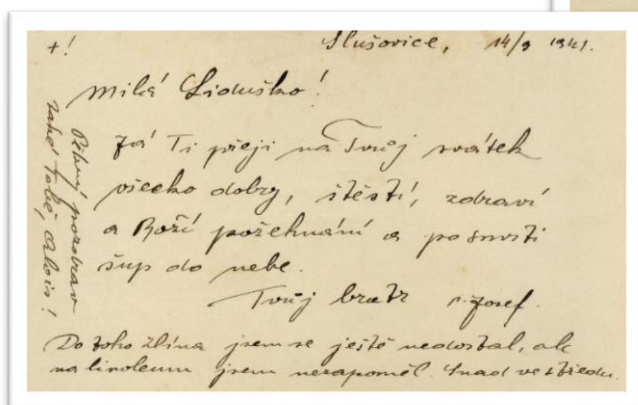 +!
Slušovice, 14/9 1941.
Milá Liduško!
Já Ti přeji na Tvůj svátek
všecko dobrý, štěstí, zdraví
a Boží požehnání a po smrti
šup do nebe.
Tvůj bratr Josef.
Do toho Zlína jsem se ještě nedostal, ale
na linoleum jsem nezapoměl. Snad ve středu.
Pěkný pozdrav
také Tobě, Alois!